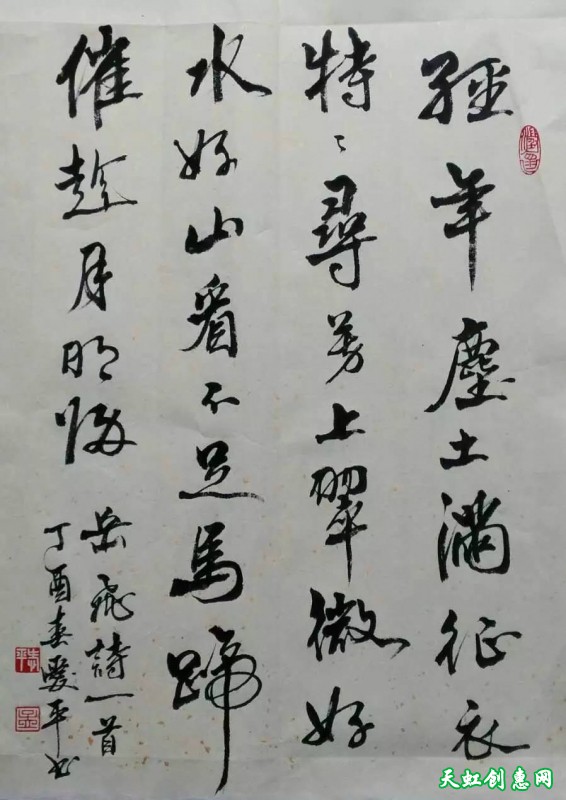 經年塵土滿征衣
特〻尋芳上翠微好
水好山看不足馬蹄
催趁月明歸
岳飛詩一首
丁酉春愛平书
天虹创惠网